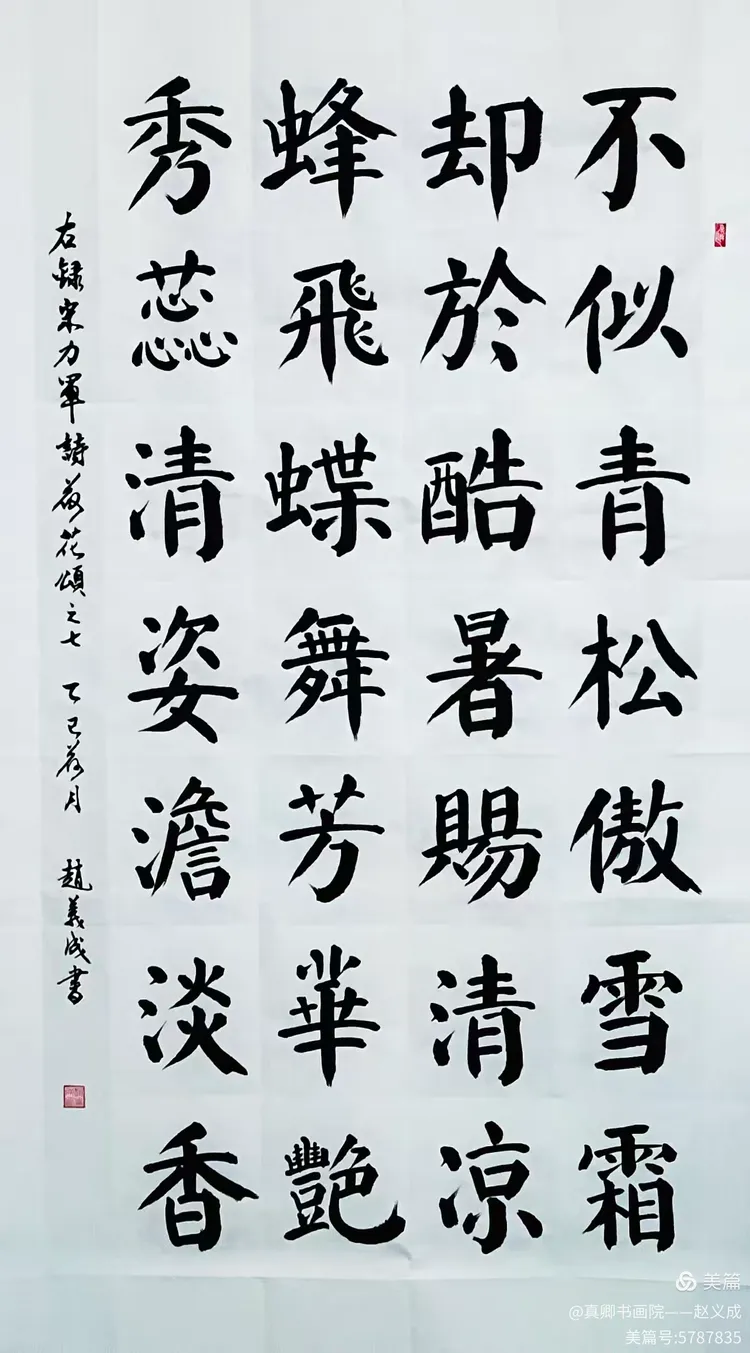 不似青松傲雪霜
却於酷暑賜清涼
蜂飛蝶舞芳華艷
秀蕊清姿澹淡香
右錄宋力軍詩荷花頌之七 乙巳荷月 趙義成書
美篇
@真卿书画院——赵义成
美篇号:5787835